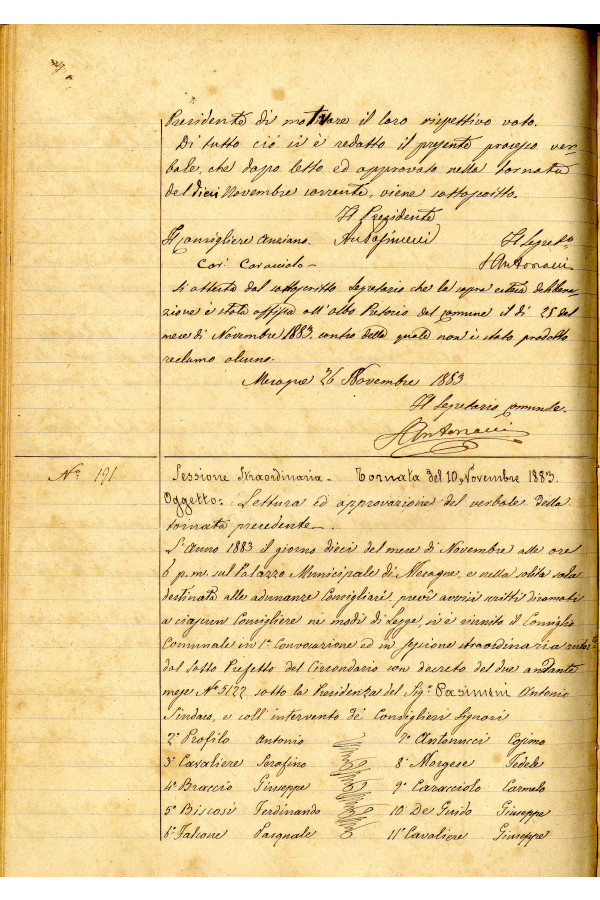 Presidente di motivare il loro rispettivo voto.
Di tutto ciò si è redatto il presente processo ver-
bale, che dopo letto ed approvato nella tornata
del dieci Novembre corrente, viene sottoscritto.
Il Presidente
Il Consigliere Anziano. Il Segret.o
Car. Caraciolo - Antonucci
Si attesta dal sottoscritto Segretario che la sopra estesa delibera-
zione è stata affissa all'Albo Pretorio del Comune il dì 25 del
mese di Novembre 1883, contro della quale non è stato prodotto
reclamo alcuno.
Mesagne 26 Novembre 1883
Il Segretario Comunale.
Antonucci
N.o 191
Sessione Straordinaria - Tornata del 10, Novembre 1883.
Oggetto: Lettura ed approvazione del verbale della
tornata precedente.
L'Anno 1883 il giorno dieci del mese di Novembre alle ore
6 p.m. sul Palazzo Municipale di Mesagne, e nella solita sala
destinata alle adunanze Consigliari, previ avvisi scritti diramati
a ciascun Consigliere ne' modi di Legge, si è riunito il Consiglio
Comunale in 1a Convocazione ed in sessione straordinaria
dal Sotto Prefetto del Circondario con decreto del due andante
mese N.o 5122 sotto la Presidenza del Sig.r Pasimini Antonio
Sindaco, e coll'intervento de' Consiglieri Signori
2o Profilo Antonio 7o Antonucci Cosimo
3o Cavaliere Serafino 8o Morgese Fedele
4o Braccio Giuseppe 9o Caracciolo Carmelo
5o Biscosi Ferdinando 10 De Guido Giuseppe
6o Falcone Pasquale 11o Cavaliere Giuseppe